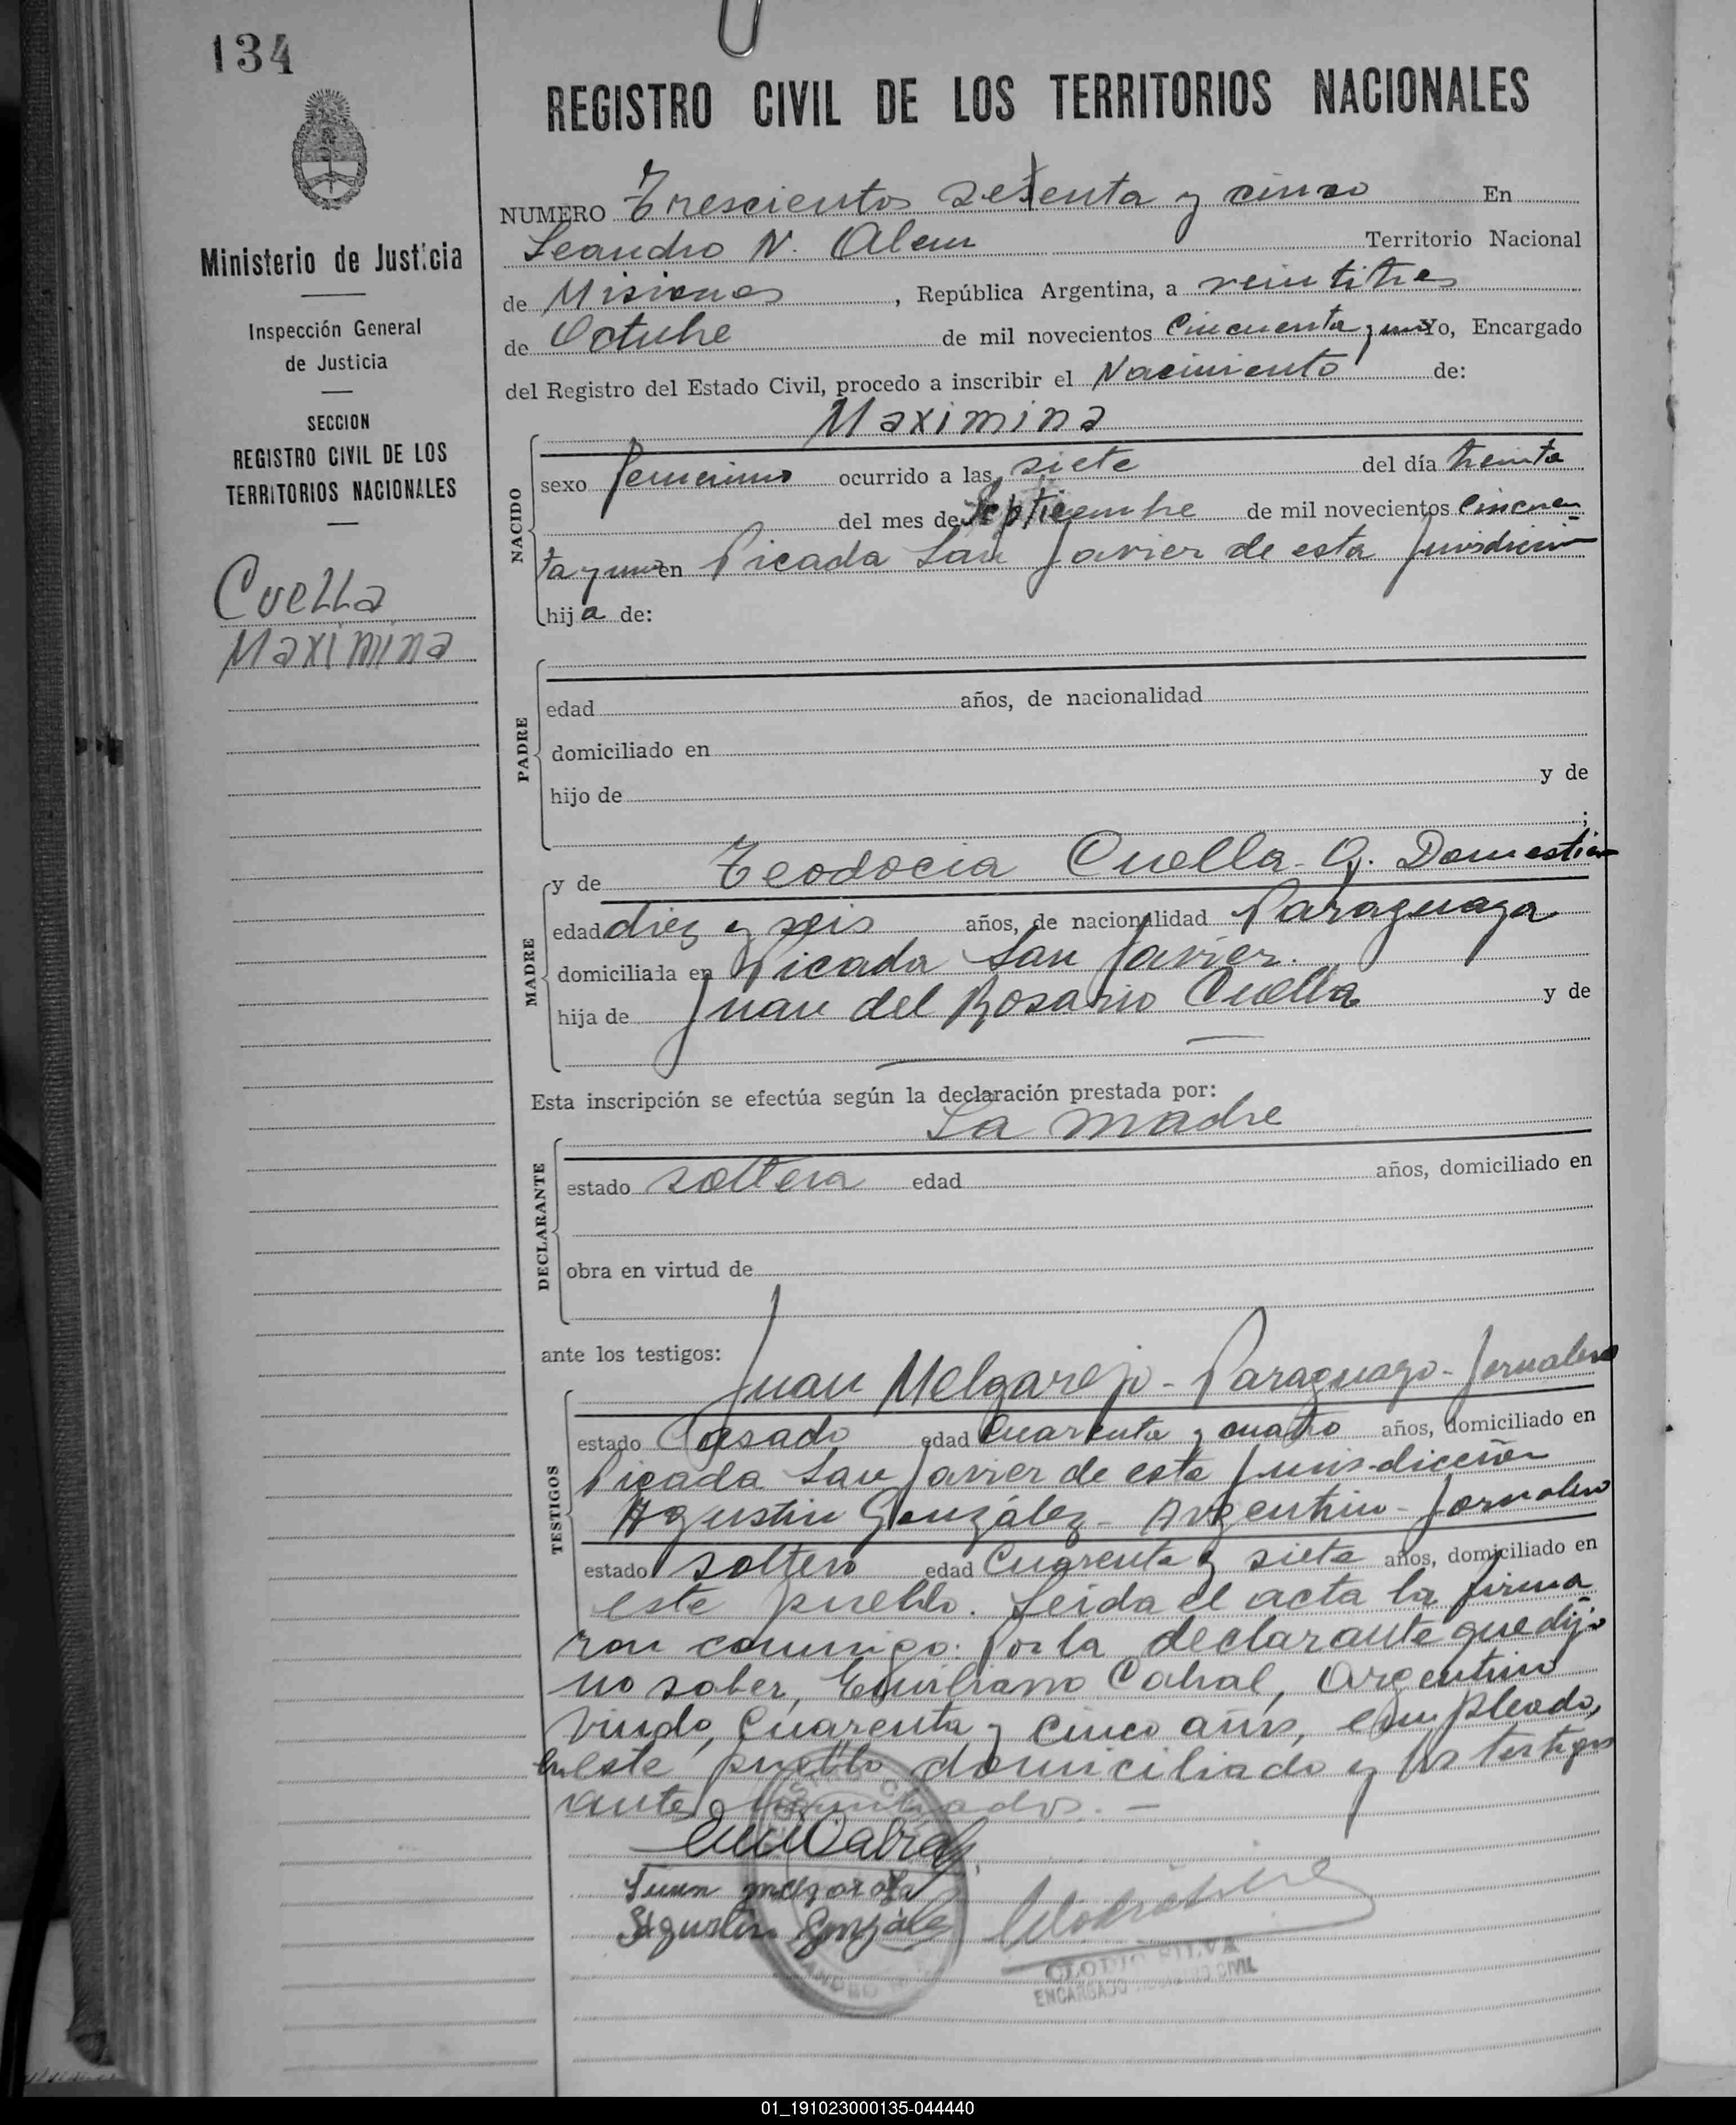 134
REGISTRO CIVIL DE LOS TERRITORIOS NACIONALES
Ministerio de Justicia
Inspección General
de Justicia
SECCION
REGISTRO CIVIL DE LOS
TERRITORIOS NACIONALES
Cuella
Maximina
NUMERO Trescientos setenta y cinco En
Leandro N. Alem Territorio Nacional
de Misiones, República Argentina, a veintitres
de Octubre de mil novecientos Cincuenta y uno Yo, Encargado
del Registro del Estado Civil, procedo a inscribir el Nacimiento de:
Maximina
NACIDO
sexo femenino ocurrido a las siete del día treinta
del mes de Septiembre de mil novecientos Cincuen
ta y uno en Picada San Javier de esta Jurisdicción
hija de:
PADRE
edad años, de nacionalidad
domiciliado en
hijo de y de
;
MADRE
y de Teodocia Cuella - Q. Domesticos
edad diez y seis años, de nacionalidad Paraguaya
domiciliada en Picada San Javier.
hija de Juan del Rosario Cuella y de
Esta inscripción se efectúa según la declaración prestada por:
La madre
DECLARANTE
estado soltera edad años, domiciliado en
obra en virtud de
ante los testigos:
Juan Melgarejo - Paraguayo - Jornalero
TESTIGOS
estado Casado edad Cuarenta y cuatro años, domiciliado en
Picada San Javier de esta Jurisdicción
Agustin González - Argentino - Jornalero
estado soltero edad Cuarenta y siete años, domiciliado en
este pueblo. Leida el acta la firma
ron conmigo: Por la declarante que dijo
no saber, Emiliano Cabral, Argentino
viudo, Cuarenta y cinco años, empleado,
en este pueblo domiciliado y los testigos
ante nombrados. -
Emi Cabral
Juan melgarejo
Agustin González
CLODIO SILVA
ENCARGADO REGISTRO CIVIL
01_191023000135-044440